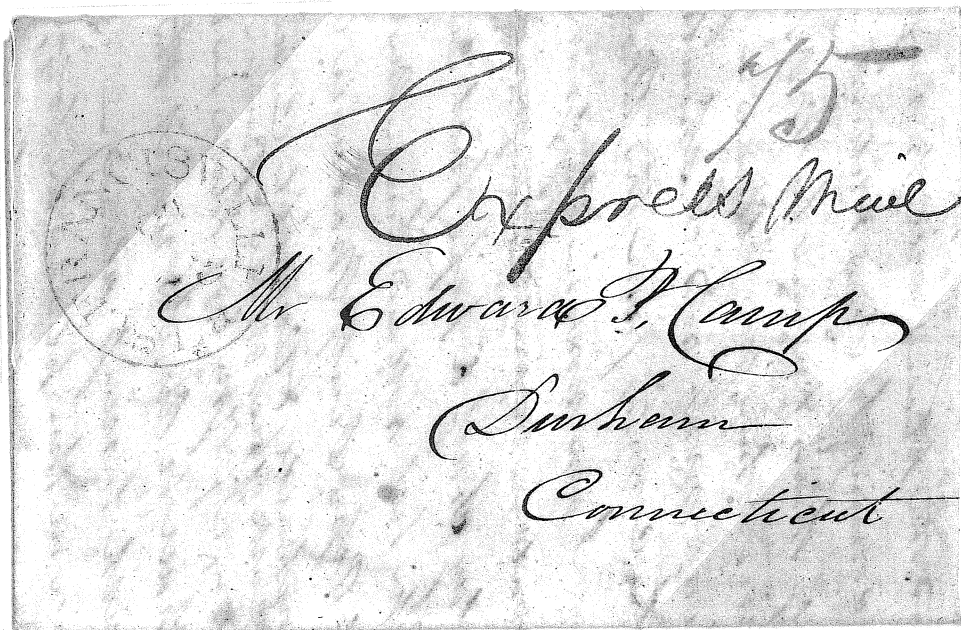 75
Express Mail
Mr Edward P. Camp
Durham
Connecticut